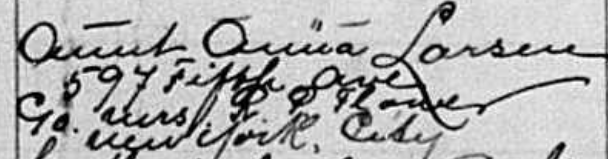 Aunt Anna Larsen
597 Fifth Ave
Co. Mrs R P Flower
New York, City